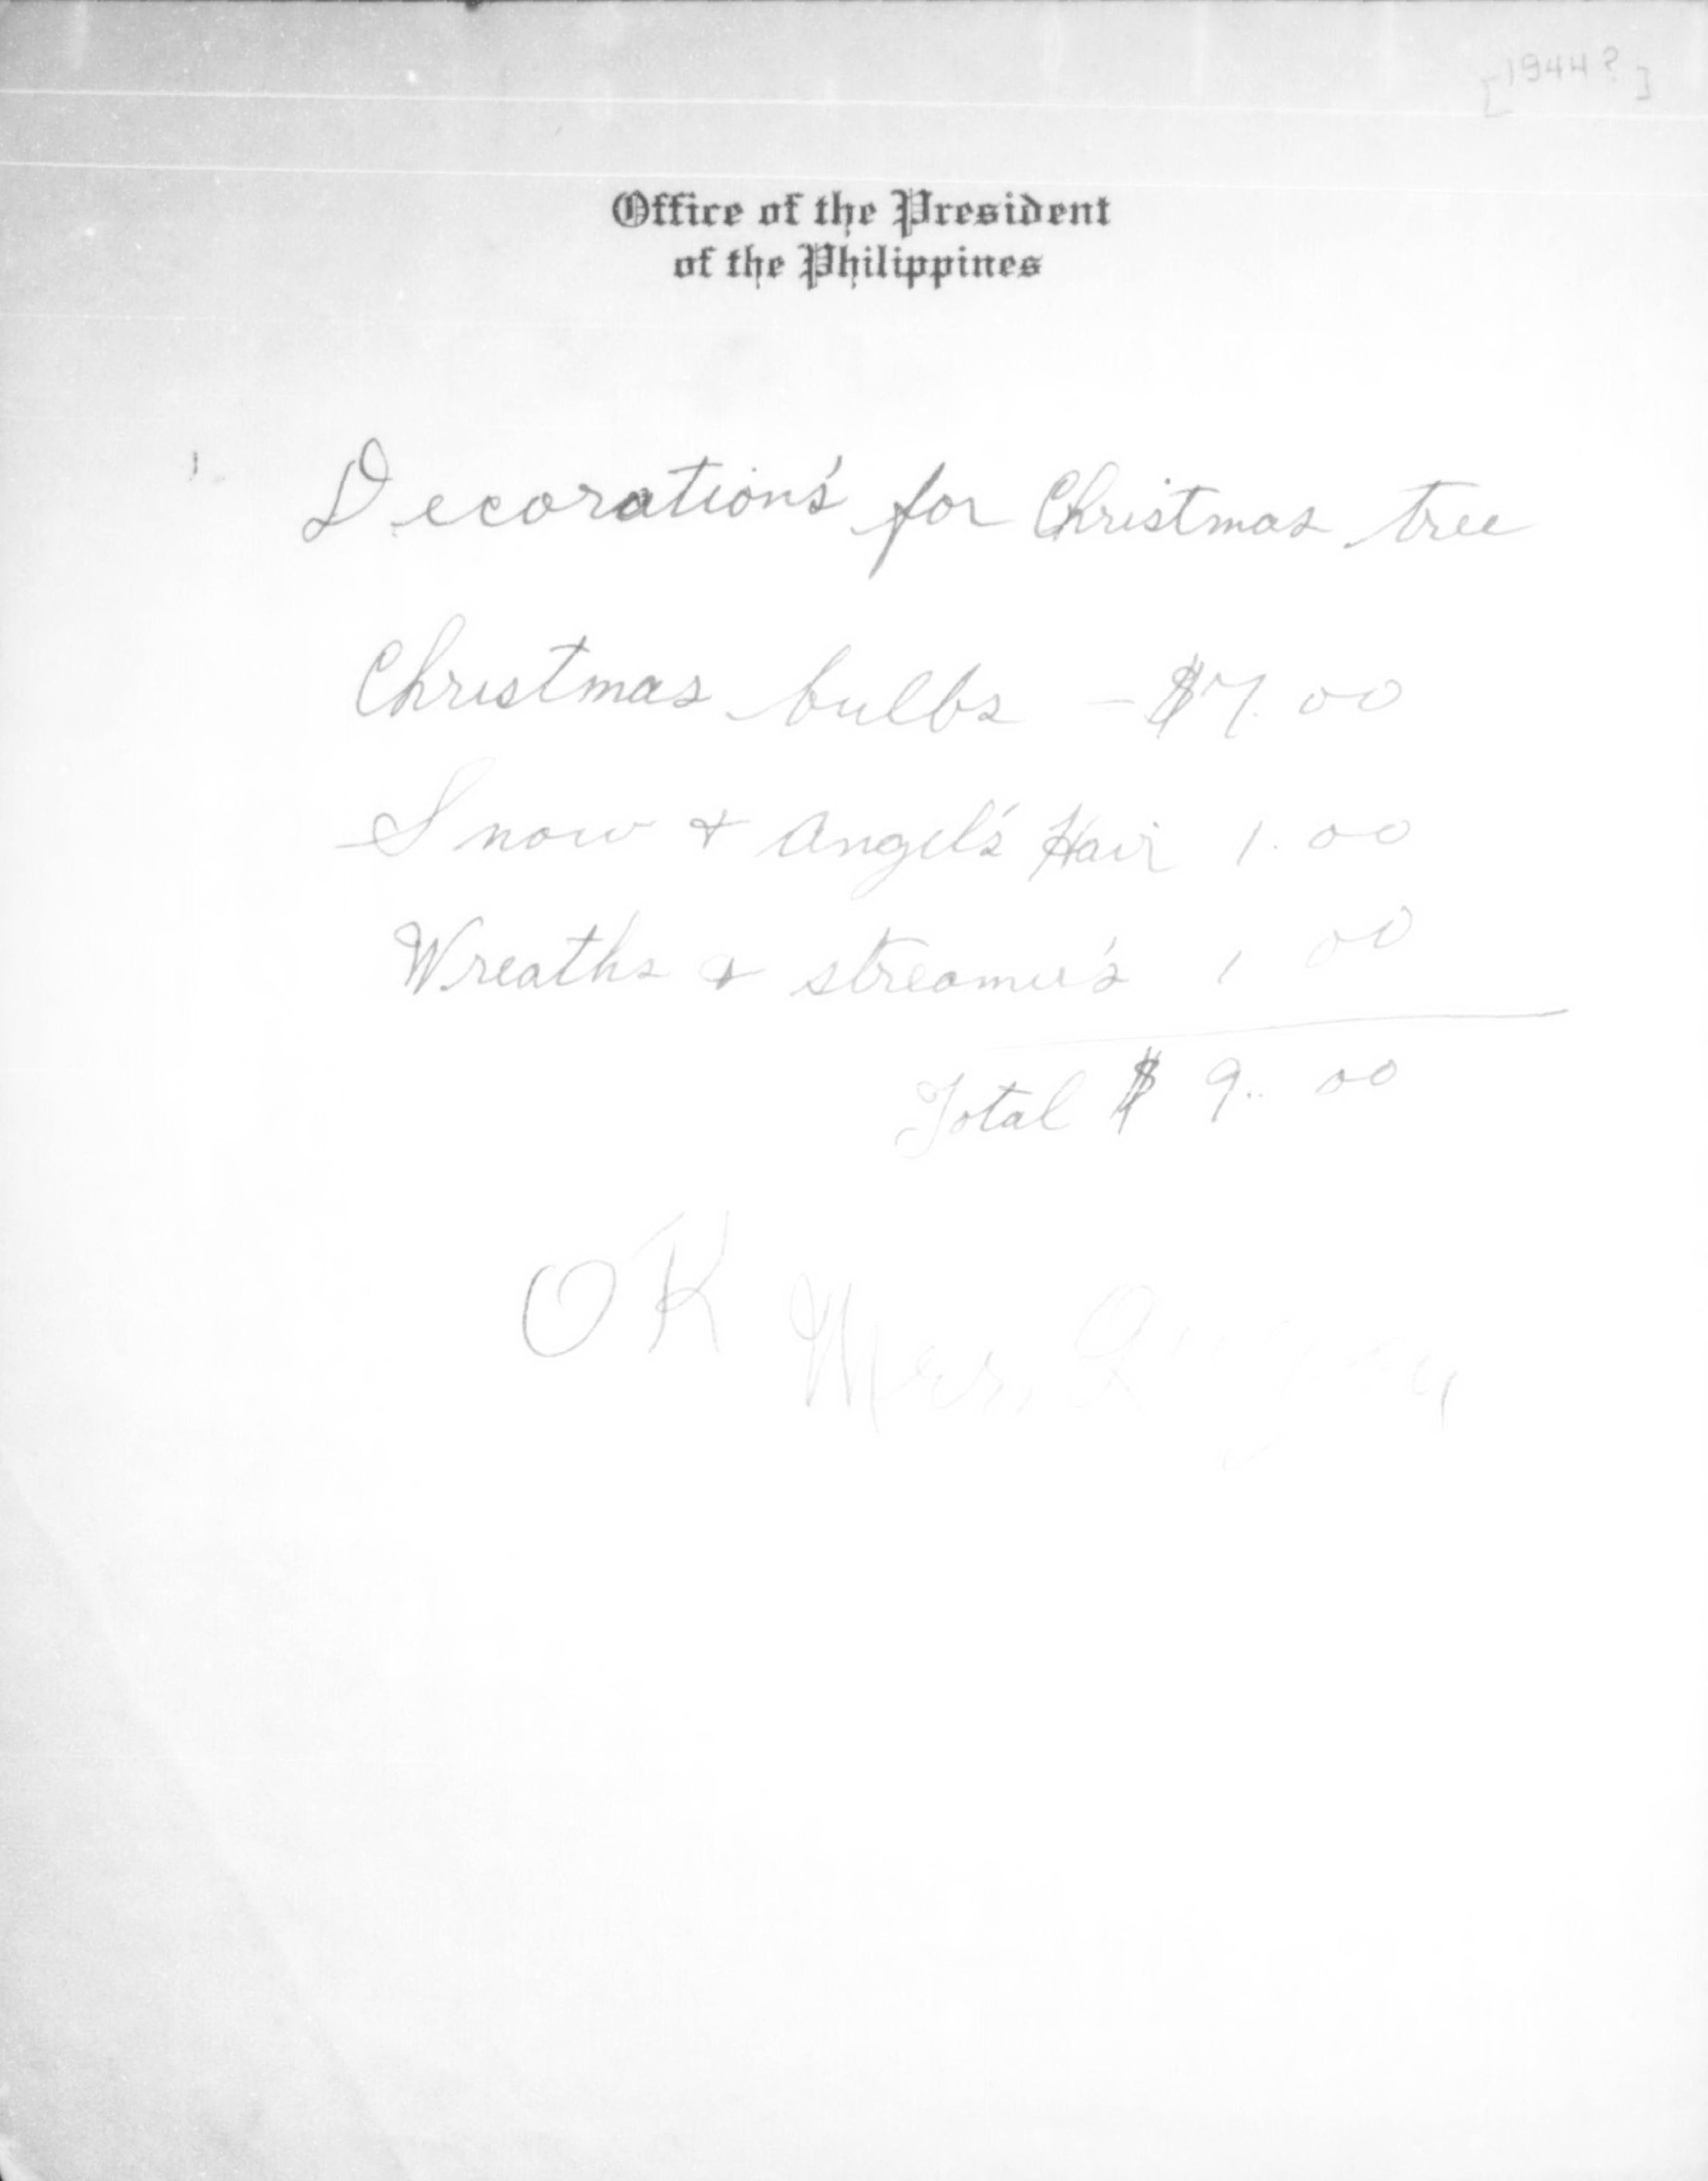 [1944?]
Office of the President
of the Philippines
1. Decoration's for Christmas tree
Christmas bulbs - $7.00
Snow + Angel's Hair 1.00
Wreaths + streamer's 1 00
Total $ 9.00
OK Mrs. Quezon